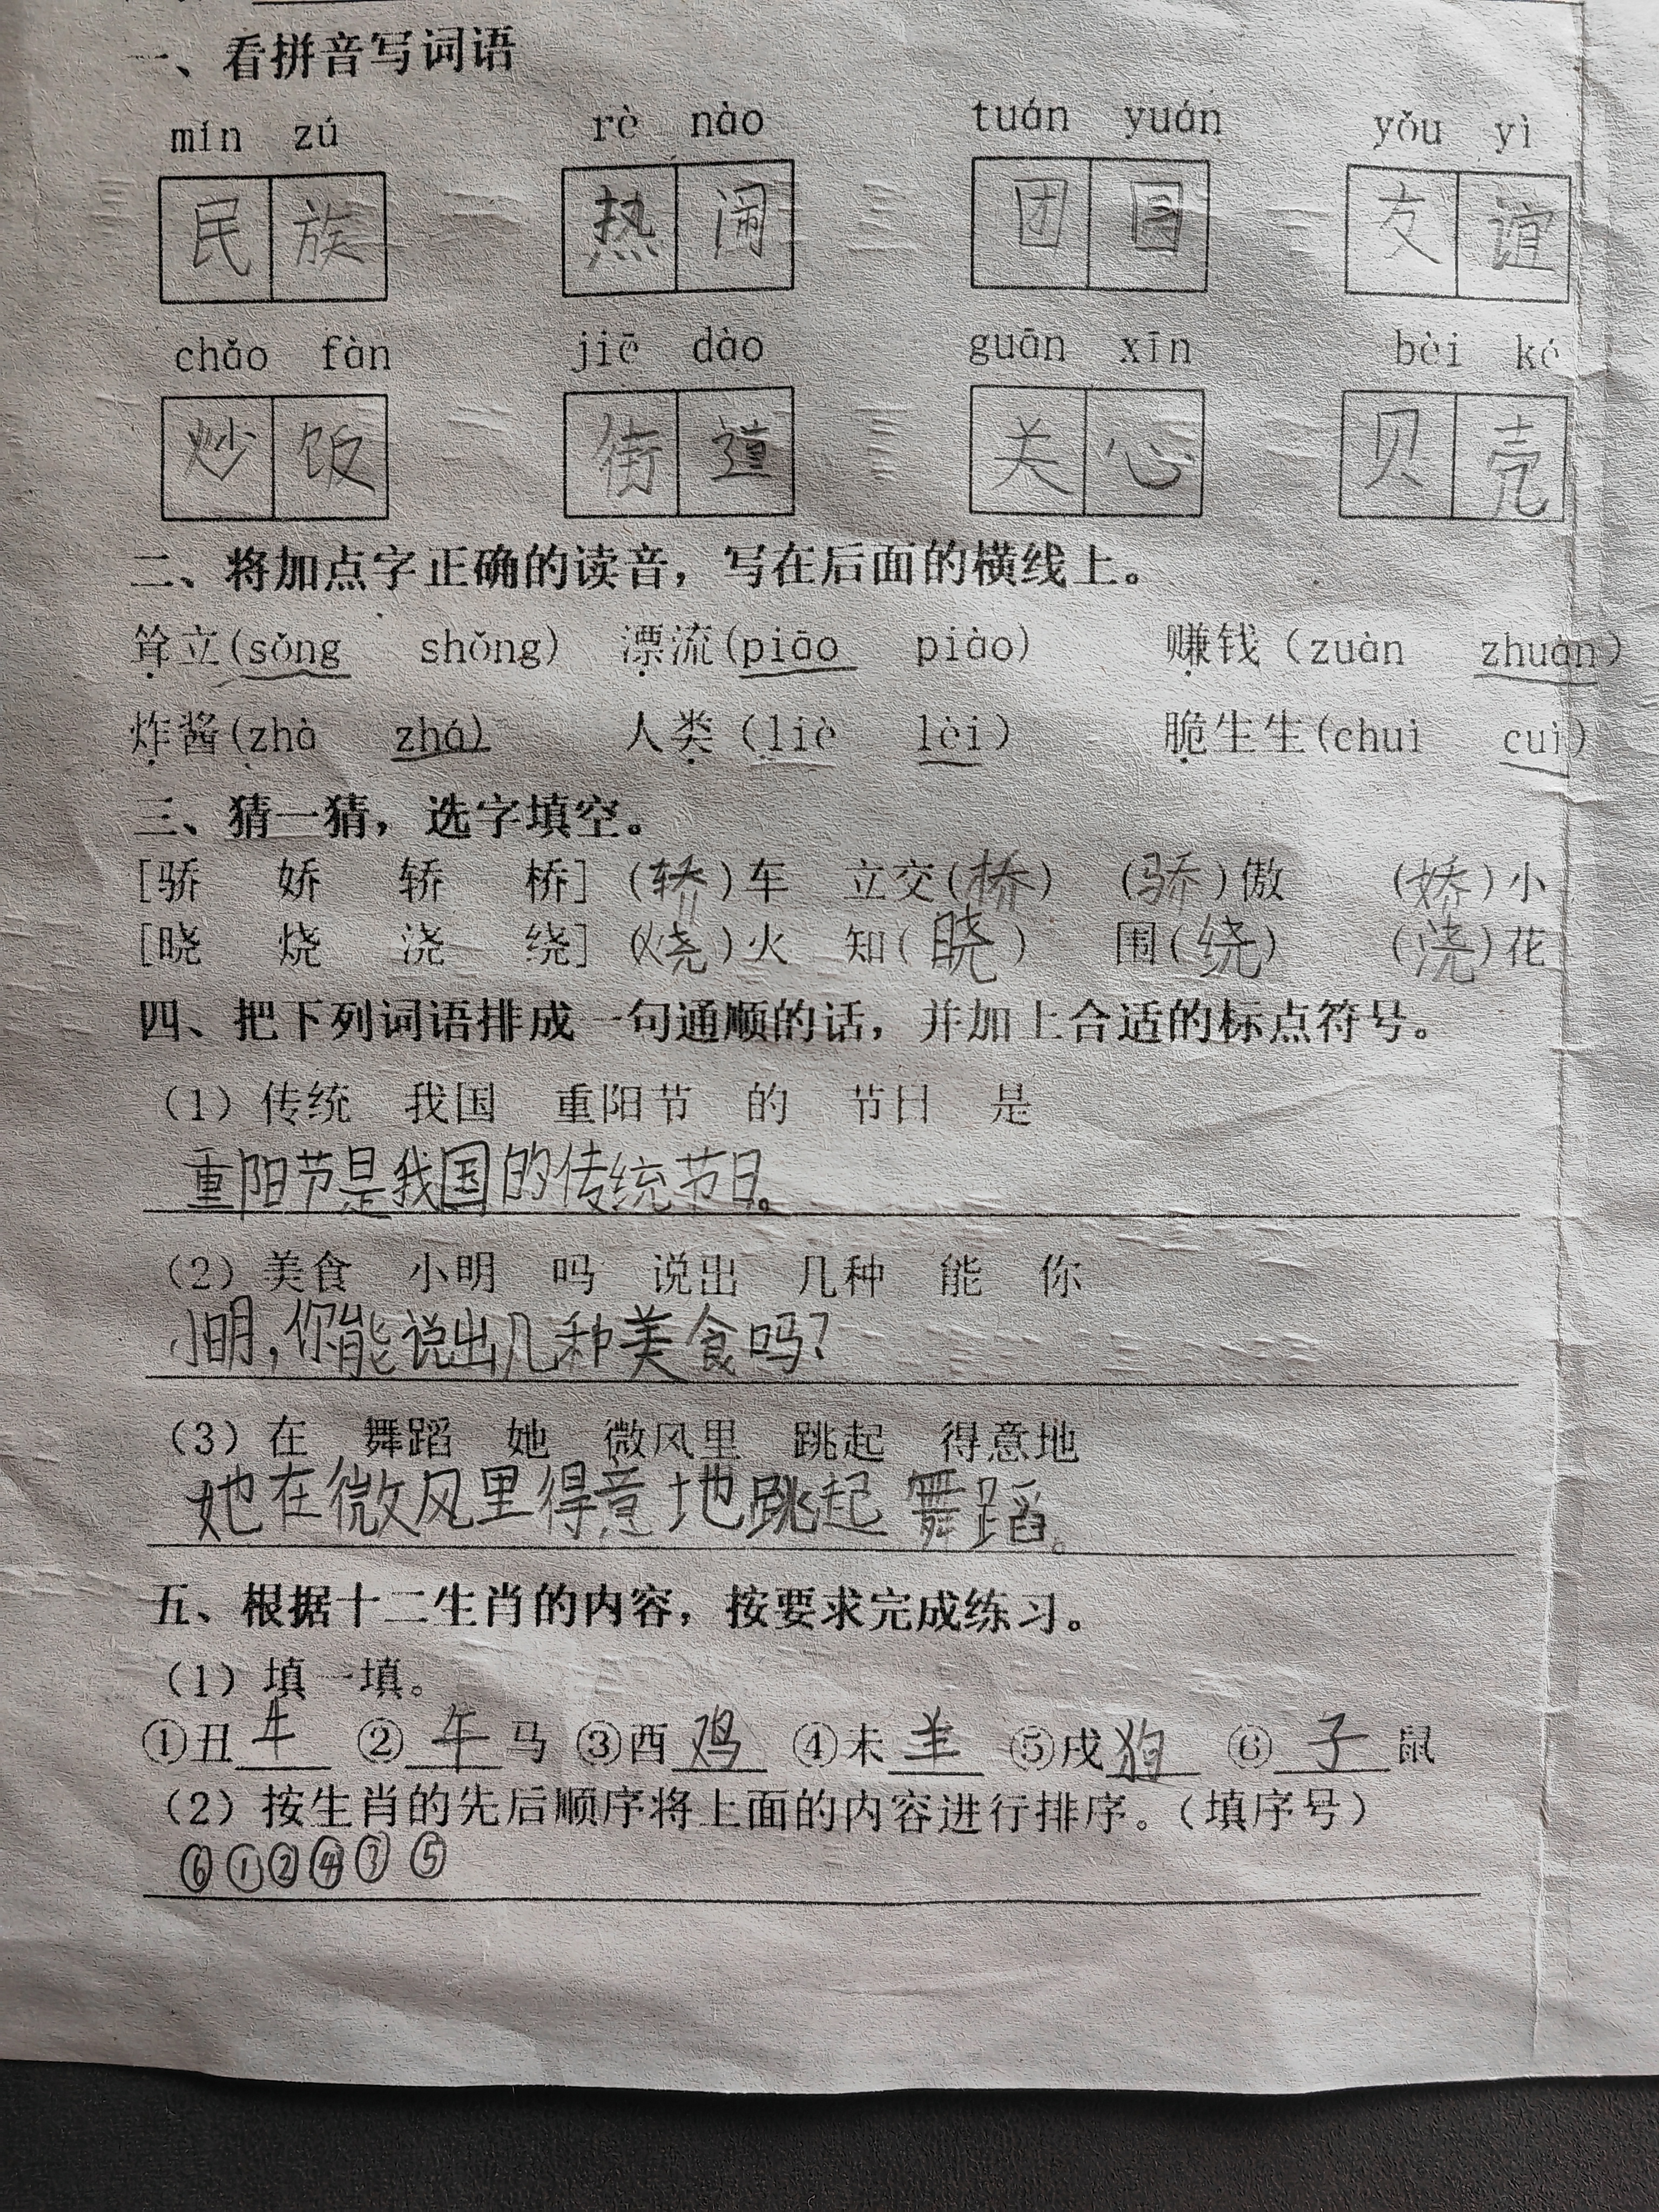 一、看拼音写词语
mín zú rè nào tuán yuán yǒu yì
民族 热闹 团圆 友谊
chǎo fàn jiē dào guān xīn bèi ké
炒饭 街道 关心 贝壳
二、将加点字正确的读音，写在后面的横线上。
耸立(sǒng shǒng) 漂流(piāo piào) 赚钱（zuàn zhuàn）
炸酱(zhà zhá) 人类（liè lèi） 脆生生(chui cui)
三、猜一猜，选字填空。
[骄 娇 轿 桥]（轿）车 立交(桥) （骄）傲 （娇）小
[晓 烧 浇 绕]（烧）火 知（晓） 围（绕） （浇）花
四、把下列词语排成一句通顺的话，并加上合适的标点符号。
（1）传统 我国 重阳节 的 节日 是
重阳节是我国的传统节日。
（2）美食 小明 吗 说出 几种 能 你
小明，你能说出几种美食吗？
（3）在 舞蹈 她 微风里 跳起 得意地
她在微风里得意地跳起舞蹈。
五、根据十二生肖的内容，按要求完成练习。
（1）填一填。
①丑牛 ②午马 ③酉鸡 ④未羊 ⑤戌狗 ⑥子鼠
（2）按生肖的先后顺序将上面的内容进行排序。（填序号）
⑥①②④③⑤